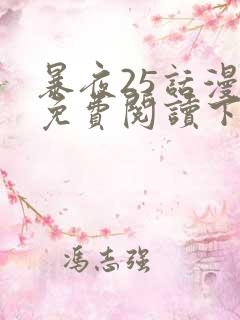 暴夜25話漫
免費閱讀下
馮志强